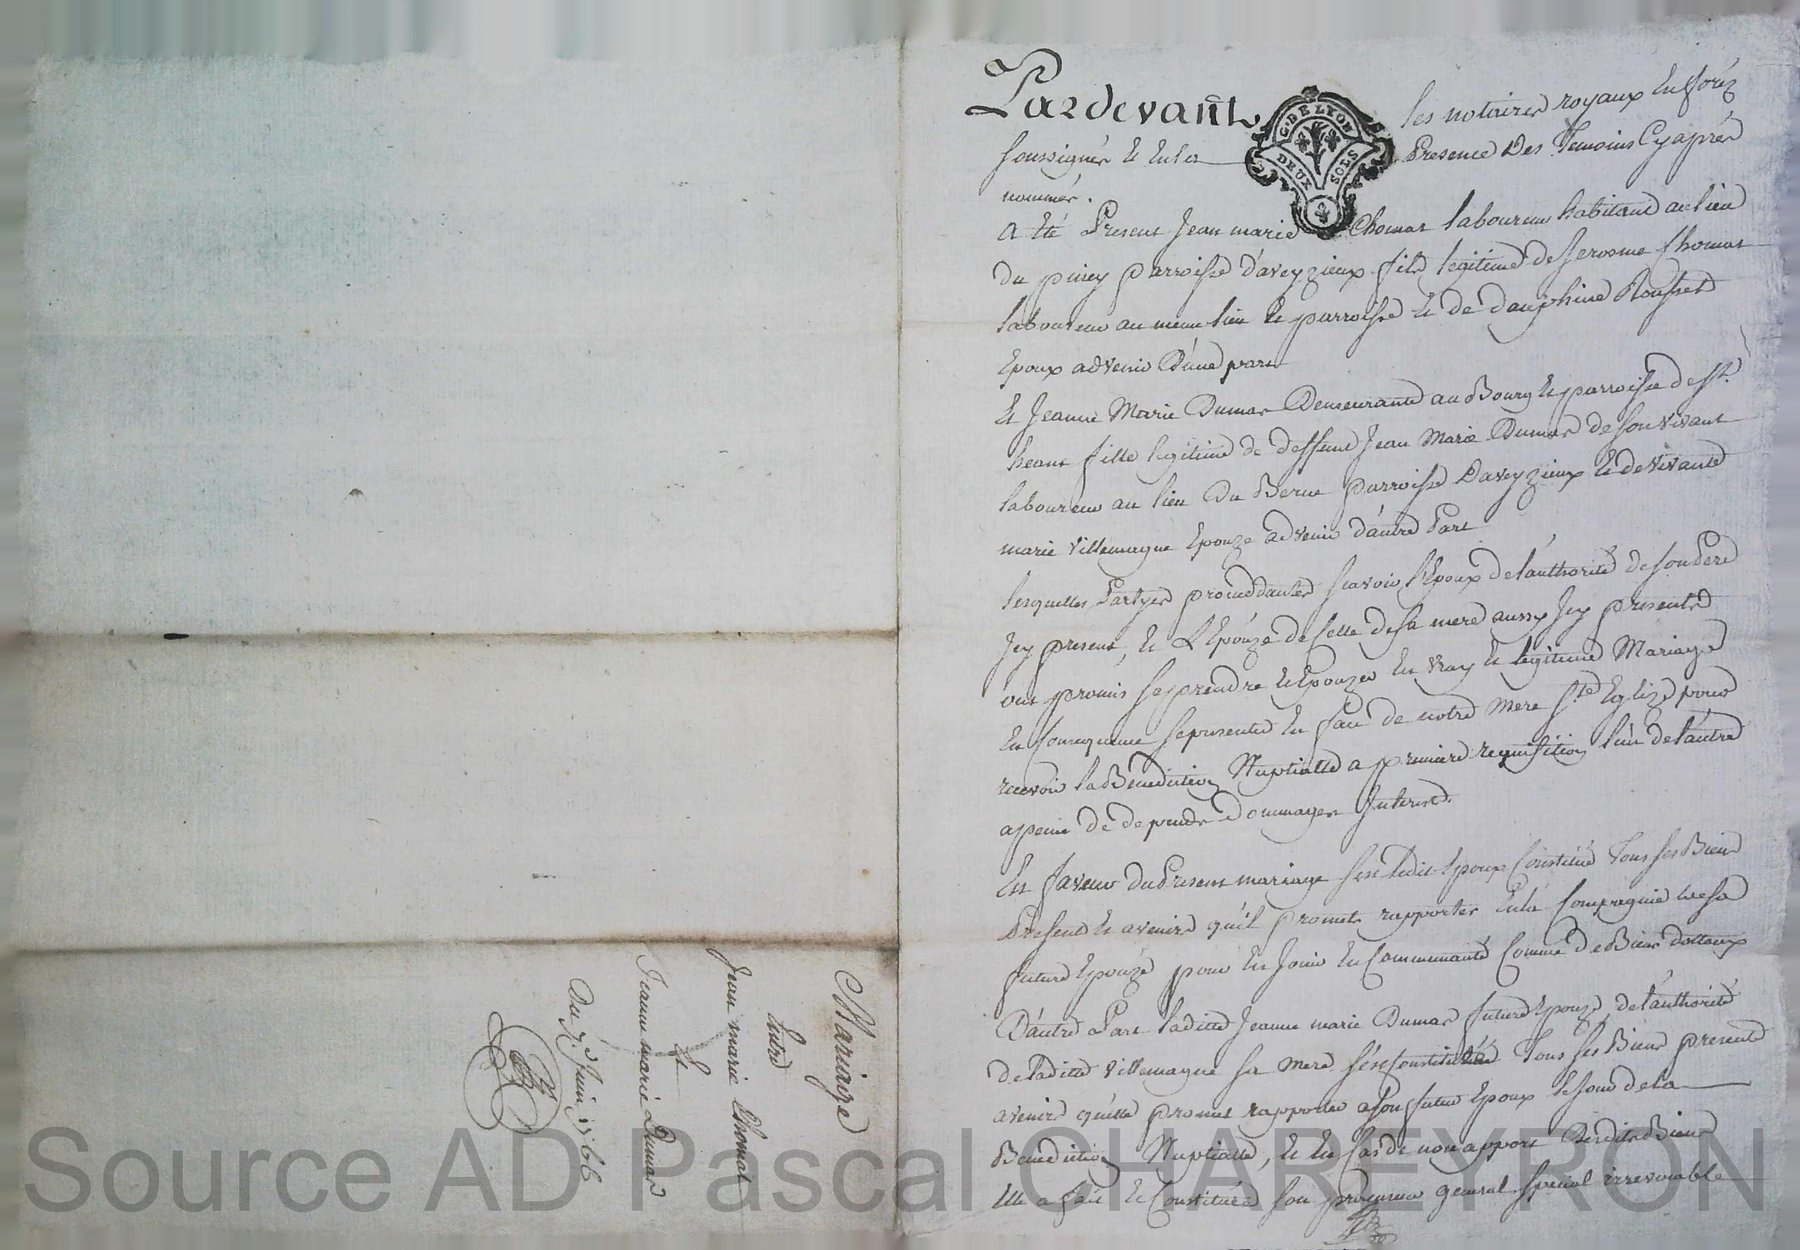 Mariage
Entre
Jean marie Thomas
Et
Jeanne marie Dumas
Du 7e Juin
Pardevant les notaires royaux En forez
soussignés et En la presence Des Temoins Cyaprés
nommés.
a été Present Jean marie Thomas laboureur habitant au lieu
du piney parroisse d'aveyzieux fils legitime de Jerosme thomas
laboureur au meme lieu et parroisse et de dauphine Rousset
Epoux advenir D'une part
Et Jeanne Marie Dumas Demeurante au Bourg et parroisse de st.
heant fille legitime de deffunt Jean Marie Dumas de son vivant
laboureur au lieu Du Berne parroisse Daveyzieux et de vivante
marie villemagne Epouze advenir d'autre Part
lesquelles Partyes proceddantes scavoir l'Epoux de l'authorité de son Pere
Icy present, et L'Epouze de Celle de sa mere aussy Icy presente
ont promis se prendre et Epouzer En vray et legitime Mariage
En Consequence se presenter En face de notre Mere Ste Eglize pour
recevoir la Benediction Nuptialle a premiere requisition l'un de l'autre
a peine de depends Dommages Interest.
En faveur Du Present mariage s'est ledit Epoux Constitué Tous ses Biens
Present et avenir qu'il promet rapporter En la Compagnie de sa
future Epouze pour En Jouir En Communauté Comme de Biens dottaux
D'autre Part laditte Jeanne marie Dumas future Epouze, de l'authorité
de laditte villemagne sa Mere s'est Constituée Tous ses Biens present
avenir qu'elle promet rapporter a son futur Epoux le Jour de la
Benediction Nuptialle, et En Cas de non apport Desdits Biens
Elle a fait et Constitué son procureur general special irrevocable
G. DE LYON
DEUX SOLS
Source AD Pascal CHAREYRON